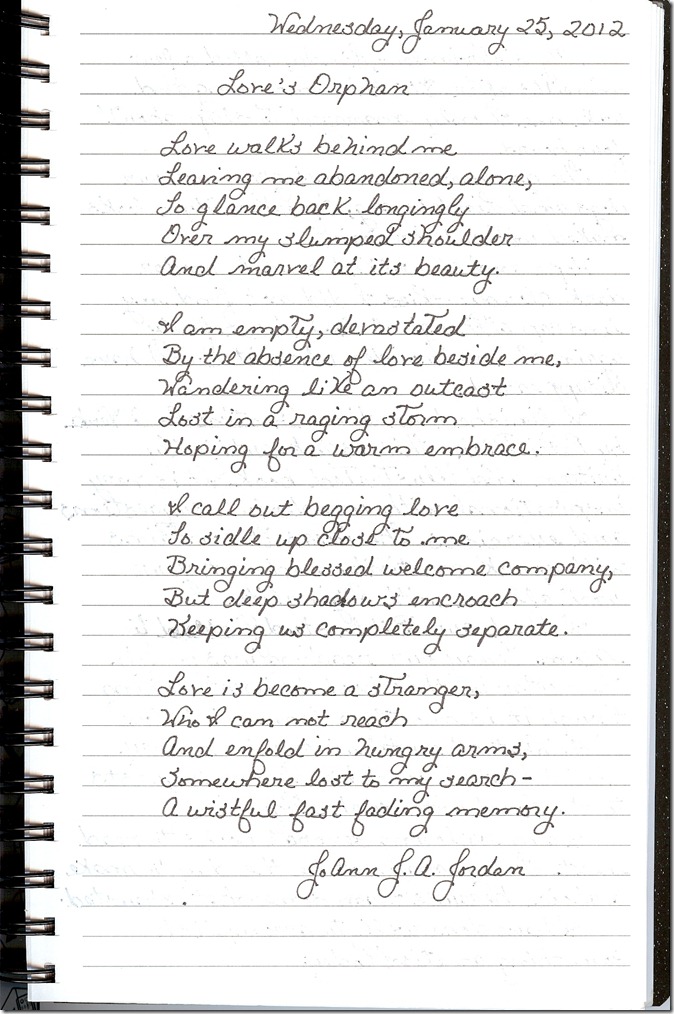 Wednesday, January 25, 2012
Love's Orphan
Love walks behind me
Leaving me abandoned, alone,
To glance back longingly
Over my slumped shoulder
And marvel at its beauty.
I am empty, devastated
By the absence of love beside me,
Wandering like an outcast
Lost in a raging storm
Hoping for a warm embrace.
I call out begging love
To sidle up close to me
Bringing blessed welcome company,
But deep shadows encroach
Keeping us completely separate.
Love is become a stranger,
Who I can not reach
And enfold in hungry arms,
Somewhere lost to my search-
A wistful fast fading memory.
JoAnn J.A. Jordan